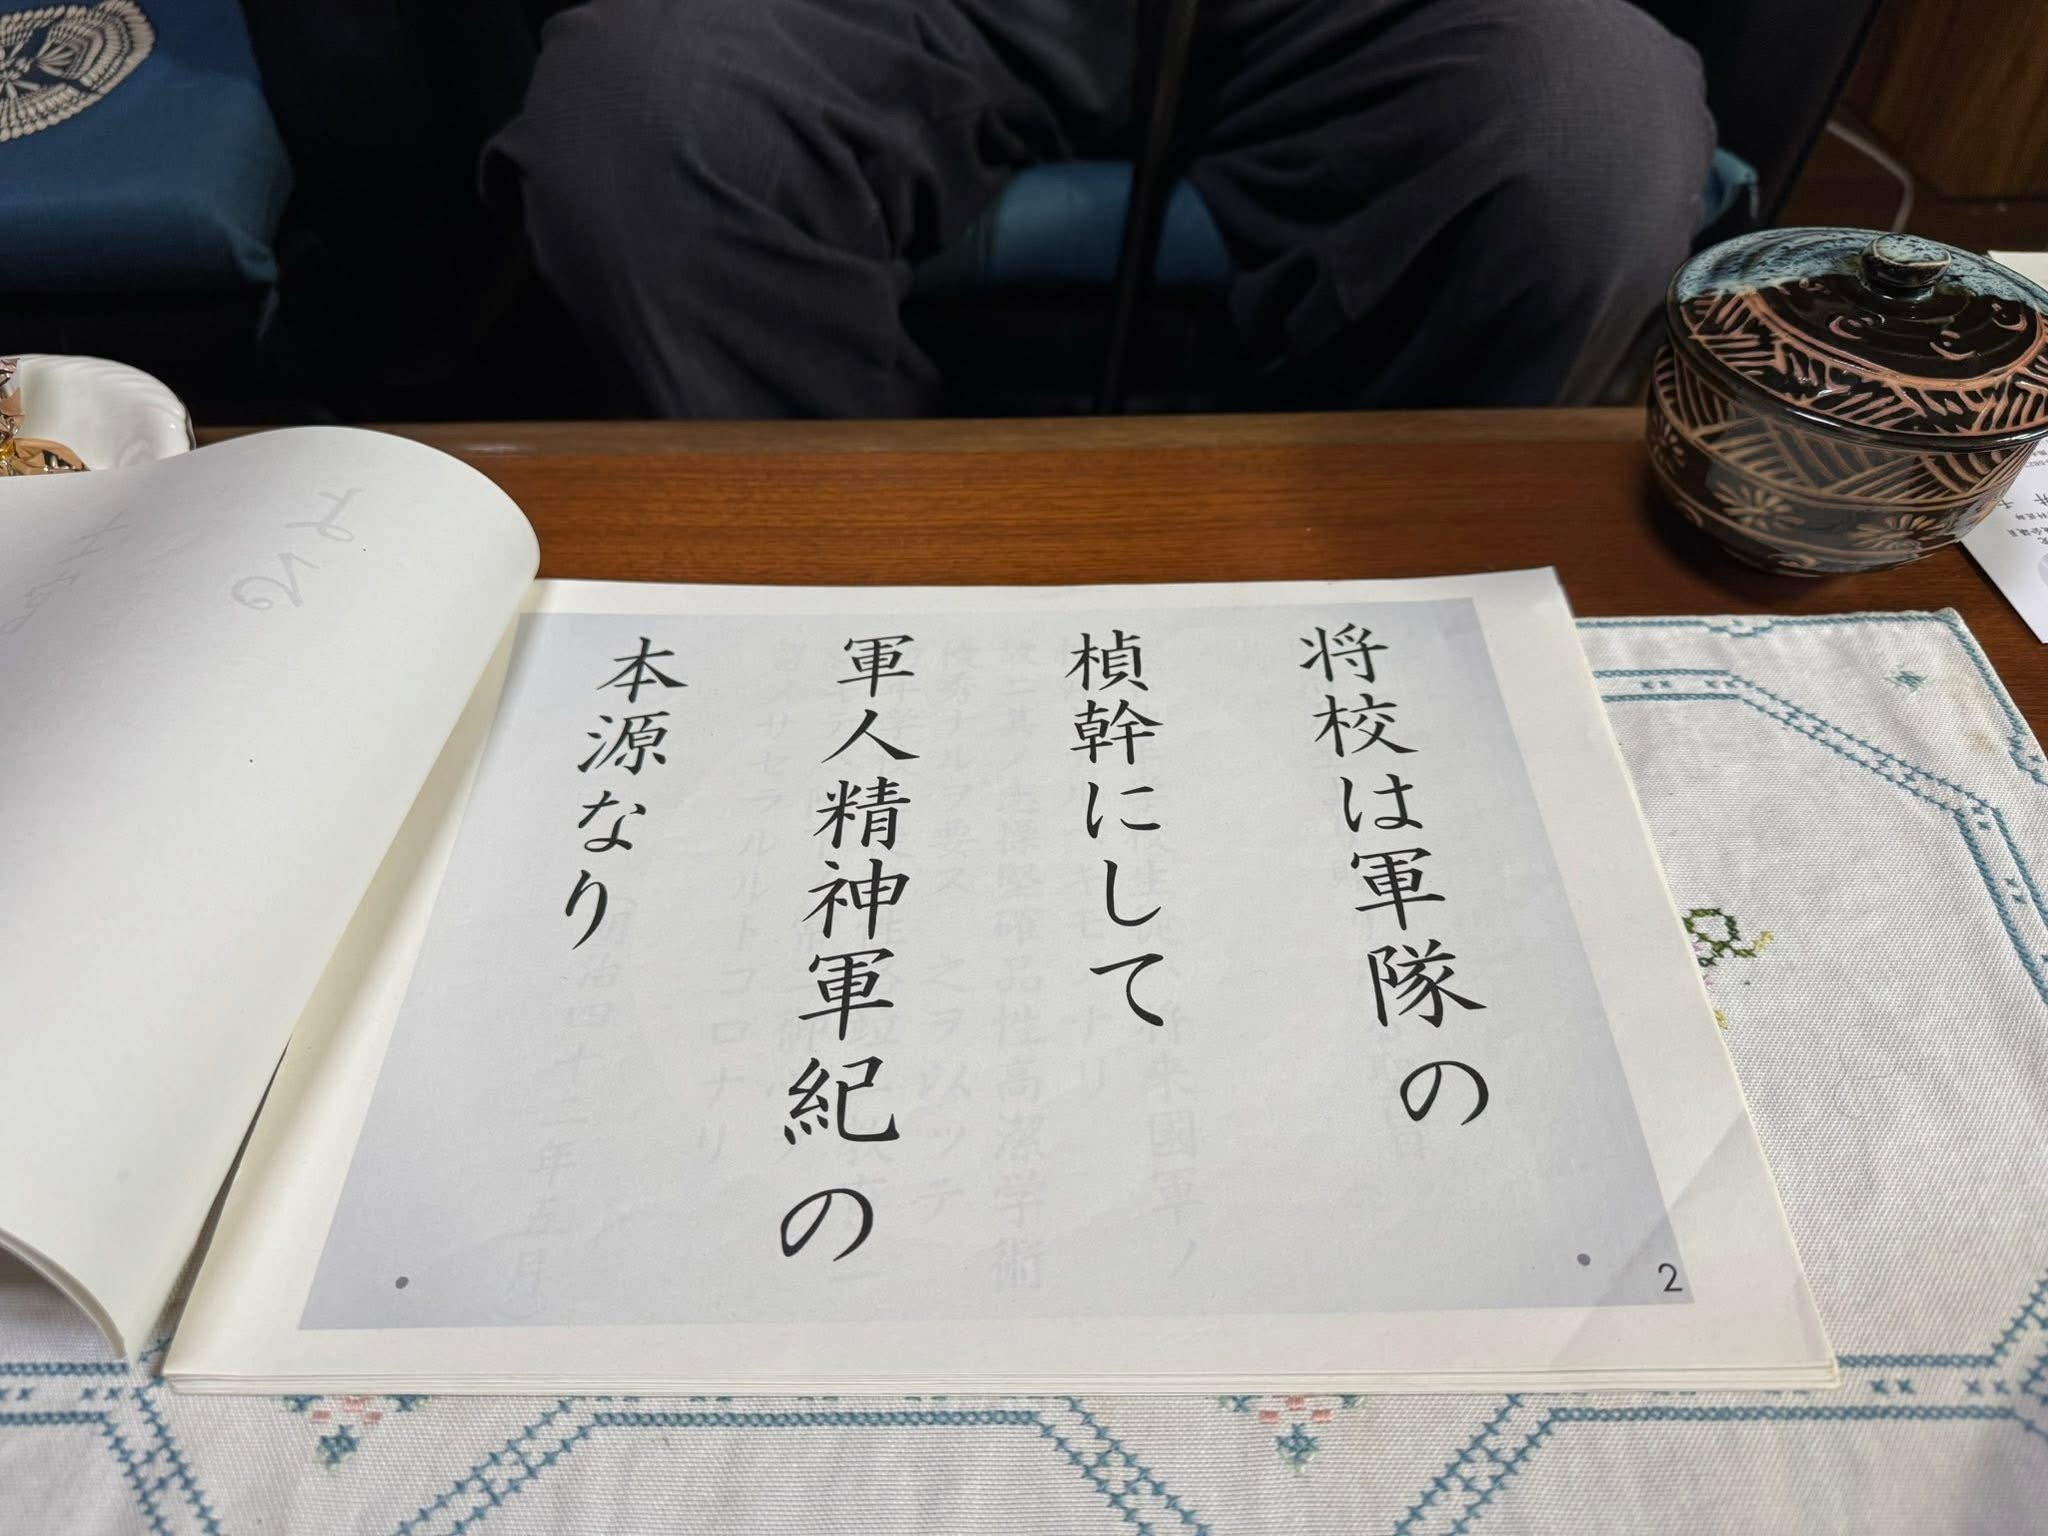 将校は軍隊の
楨幹にして
軍人精神軍紀の
本源なり
2